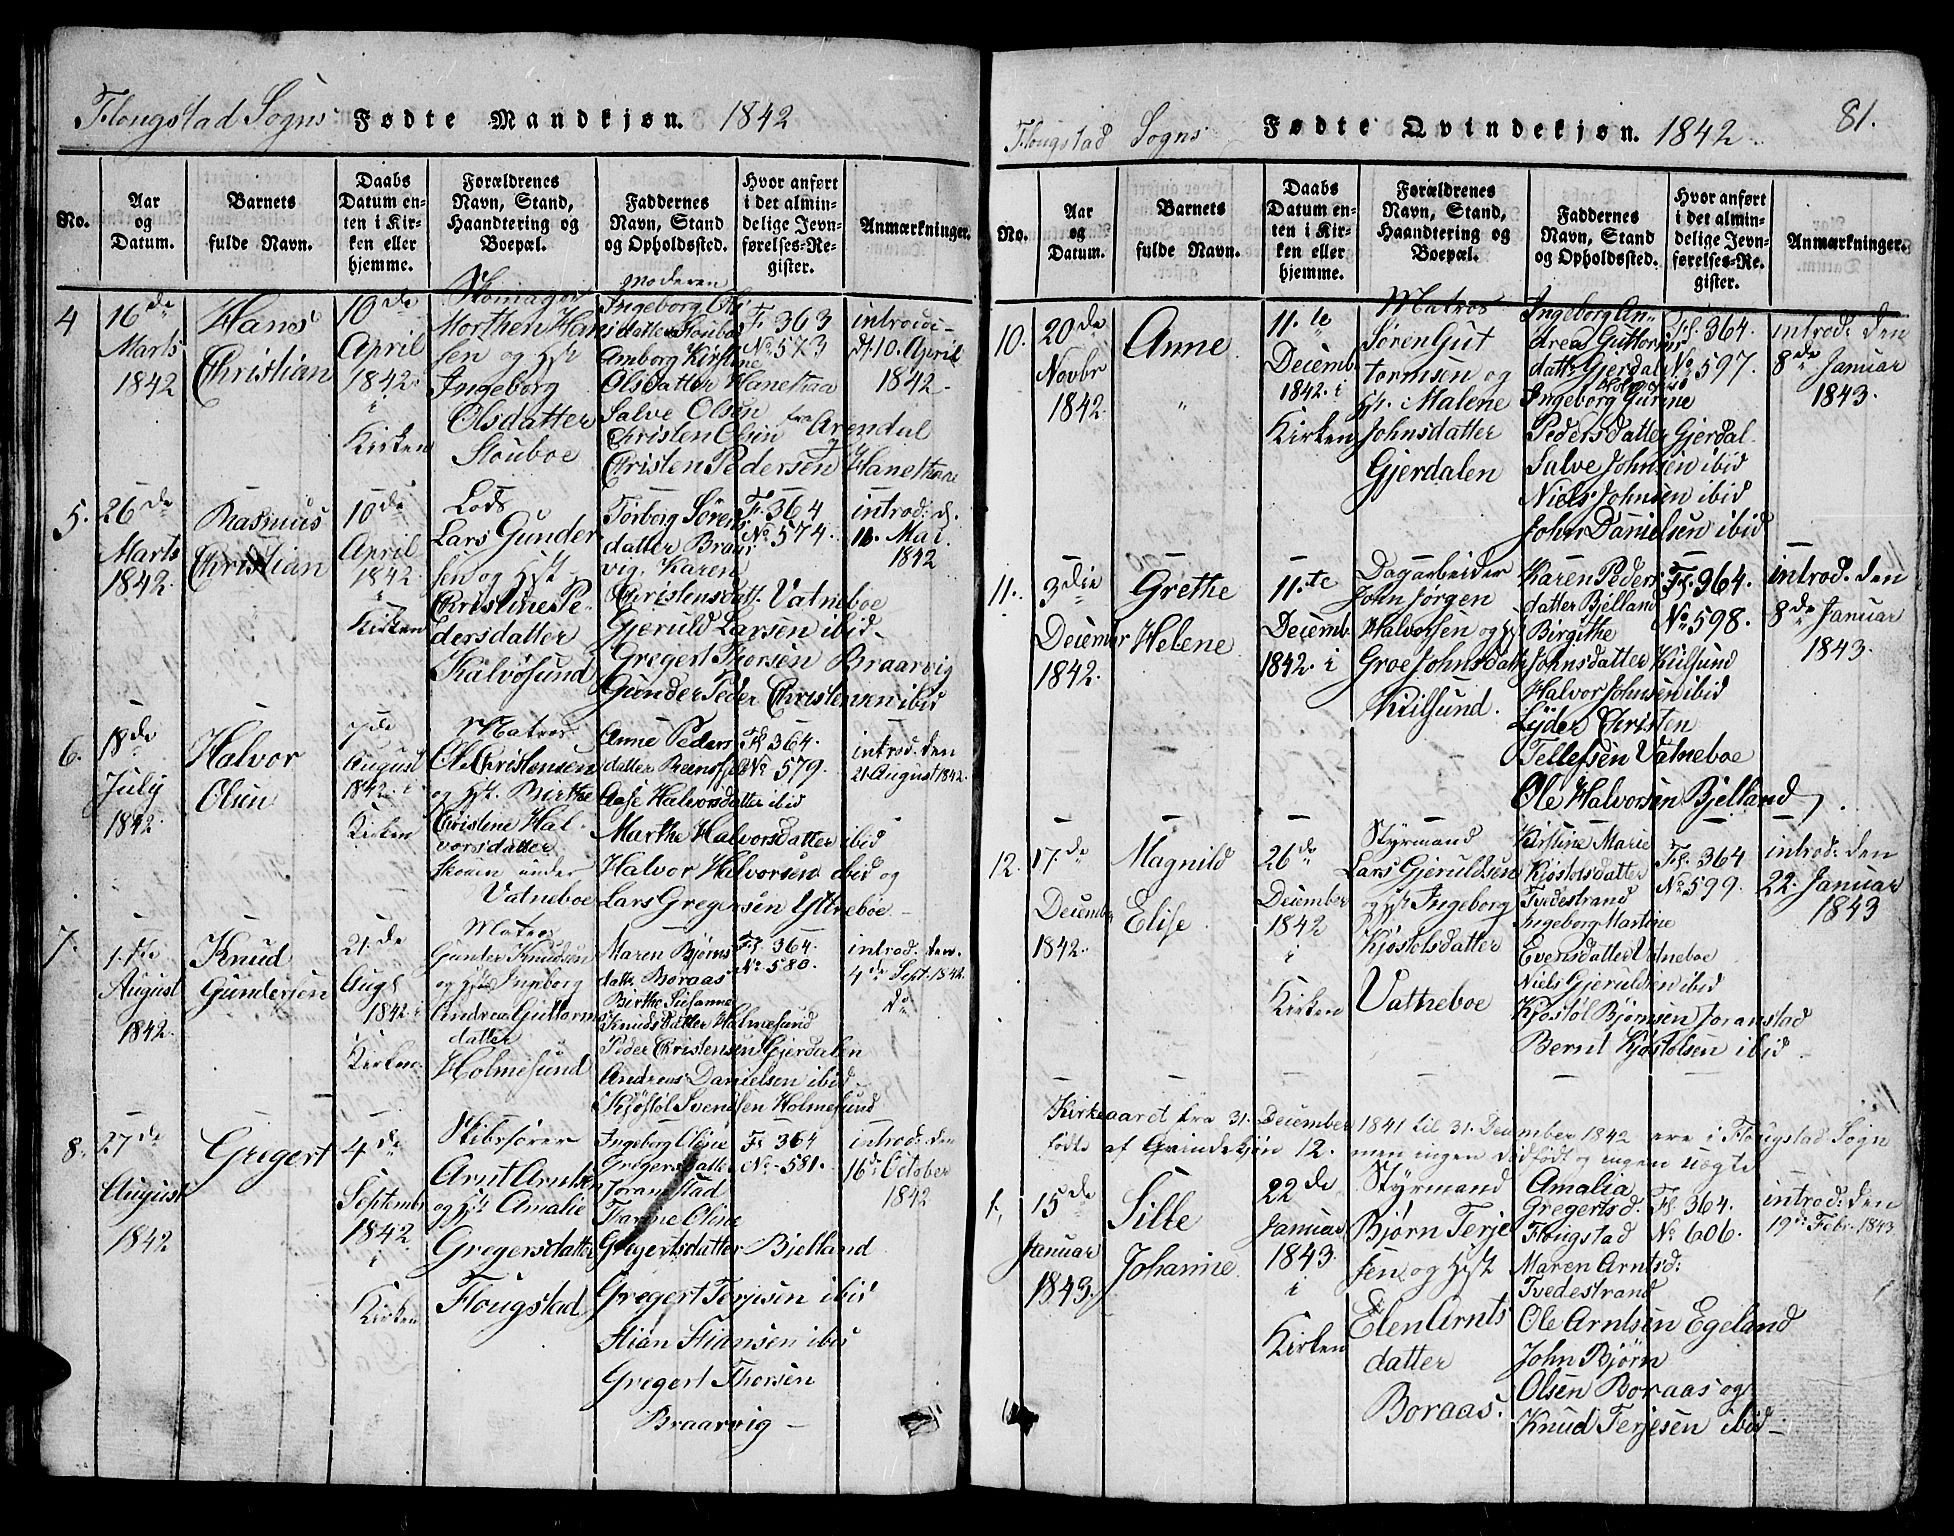 Flougstad Sogns Fødte Mandkjøn. 1842
No.
Aar og Datum.
Barnets fulde Navn.
Daabs Datum enten i Kirken eller hjemme.
Forældrenes Navn, Stand, Haandtering og Boepæl.
Faddernes Navn, Stand og Opholdssted.
Hvor anført i det almindelige Jevnførelses-Register.
Anmærkninger.
4
16de
Marts
1842
Hans
Christian
10de
April
1842
i
Kirken
Skomager
Morthen Han
sen og Hst
Ingeborg
Olsdatter
Stouboe
Moderen
Ingeborg Ols
datter Stouboe
Amborg Kirstine
Olsdatter Hanehaa
Salve Olsen
Christen Olsen fra Arendal
Christen Pedersen Hanethaa
F. 363
No. 573
introd:
d. 10. April
1842
5.
26de
Marts
1842.
Rasmus
Christian
10de
April
1842
i
Kirken
Lods
Lars Gunder
sen og Hst
Christine Pe-
dersdatter
Kalvøsund
Torborg Sørens
datter Braar
vig. Karen
Christensdatt. Vatneboe
Gjeruld Larsen ibid
Gregert Thorsen Braarvig
Gunder Peder Christensen ibid
F. 364
No. 574.
introd: d.
16. Mai
1842
6.
18de
July
1842.
Halvor
Olsen
7de
August
1842. i
Kirken
Matros
Ole Christensen
og Hst. Birthe
Christine Hal-
vorsdatter
Skouen under
Vatneboe
Anne Peders
datter
Aase Halvorsdatter ibid
Marthe Halvorsdatter ibid
Halvor Halvorsen ibid og
Lars Gregersen Yttreboe
Fl. 364.
No. 579.
introd: den
21 August 1842.
7.
1.ste
August
1842.
Knud
Gundersen
21.de
Augs
1842. i
Kirken.
Matros
Gunder Knudsen
og Hst Ingeborg
Andrea Guttorms
datter
Holmesund
Maren Bjørns
datt. Boraas
Birthe Susanne
Knudsdatter Holmesund
Peder Christensen Gjerdalen
Andreas Danielsen ibid
Kjøstøl Svendsen Holmesund
Fl. 364.
No. 580.
introd. den.
4de Sept. 1842.
8.
27de
August
1842
Gregert
4de
September
1842.
i
Kirken
Skibsfører
Arnt Arntse
og Hst Amalie
Gregersdatter
Flougstad
Ingeborg Oline
Gregersdatter
Joranstad
Oline
Gregertsdatter Bjelland
Gregert Terjesen ibid
Stian Stiansen ibid
Gregert Thorsen
Braarvig
Fl 364
No. 581.
introd: den
16de October
1842
Flougstad Sogns Fødte Qvindekjøn. 1842.
81.
No.
Aar og Datum.
Barnets fulde Navn.
Daabs Datum enten i Kirken eller hjemme.
Forældrenes Navn, Stand, Haandtering og Boepæl.
Faddernes Navn, Stand og Opholdssted.
Hvor anført i det almindelige Jevnførelses-Register.
Anmærkninger.
10.
20de
Novbr
1842.
Anne
11.te
Decemb
1842. i
Kirken
Matros
Søren Gut
tormsen og
Hst. Malene
Johnsdatter
Gjerdalen
Ingeborg An-
drea Guttorms
datt. Gjerdal
Ingeborg Gurine
Pedersdatter Gjerdal
Salve Johnsen ibid
Niels Johnsen ibid
John Danielsen ibid
Fl. 364.
No. 597.
introd: den
8de Januar
1843.
11.
3die
December
1842.
Grethe
Helene
11.te
Decemb.
1842. i
Dagarbeider
John Jørgen
Halvorsen og Hst
Groe Johnsdatt.
Kiilsund.
Karen Peders
datter Bjelland
Birgithe
Johnsdatter Kiilsund
Halvor Johnsen ibid
Lyder Christen
Tellefsen Vatneboe
Ole Halvorsen Bjelland
Fl. 364.
No. 598.
introd: den
8de Januar
1843.
12.
17.de
December
1842.
Magnild
Elise
26de
December
1842
i
Kirken
Styrmand
Lars Gjeruldsen
og Hst Ingeborg
Kjøstolsdatter
Vatneboe
Kirstine Marie
Kjøstolsdatter
Tvedestrand
Ingeborg Martine
Evensdatter Vatneboe
Niels Gjeruldsen ibid
Kjøstøl Bjørnsen Joranstad
Bernt Kjøstolsen ibid
Fl. 364
No. 599.
introd: den
22. Januar
1843
Kirkeaaret fra 31. December 1841 til 31. December 1842 ere i Flougstad Sogn
fødte af Qvindekjøn 12. men ingen dødfødt og ingen uægte
1.
15de
Januar
1843.
Sille
Johanne.
22de
Januar
1843.
i
Kirken
Styrmand
Bjørn Terje
sen og Hst
Elen Arnts
datter
Boraas.
Amalia
Gregertsd.
Flougstad
Maren Arntsd:
Tvedestrand
Ole Arntsen Egeland
John Bjørn
Olsen Boraas og
Knud Terjesen ibid
Fl. 364.
No 606.
introd: den
19de Febr. 1843